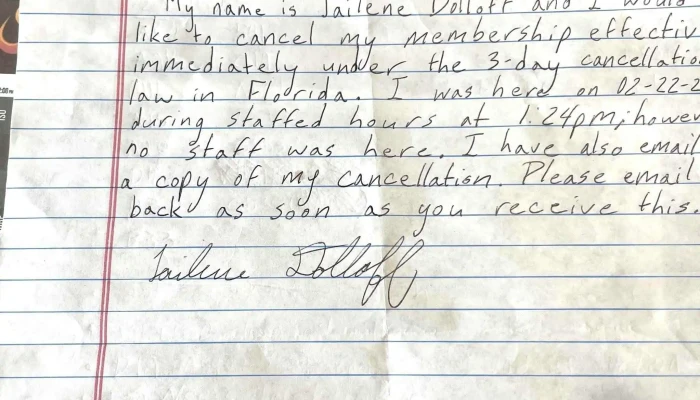 My name is Jailene Dolloff and I would
like to cancel my membership effectiv
immediately under the 3-day cancellatio
law in Florida. I was here on 02-22-2
during staffed hours at 1:24pm; howev
no staff was here. I have also email
a copy of my cancellation. Please email
back as soon as you receive this.
Jailene Dolloff